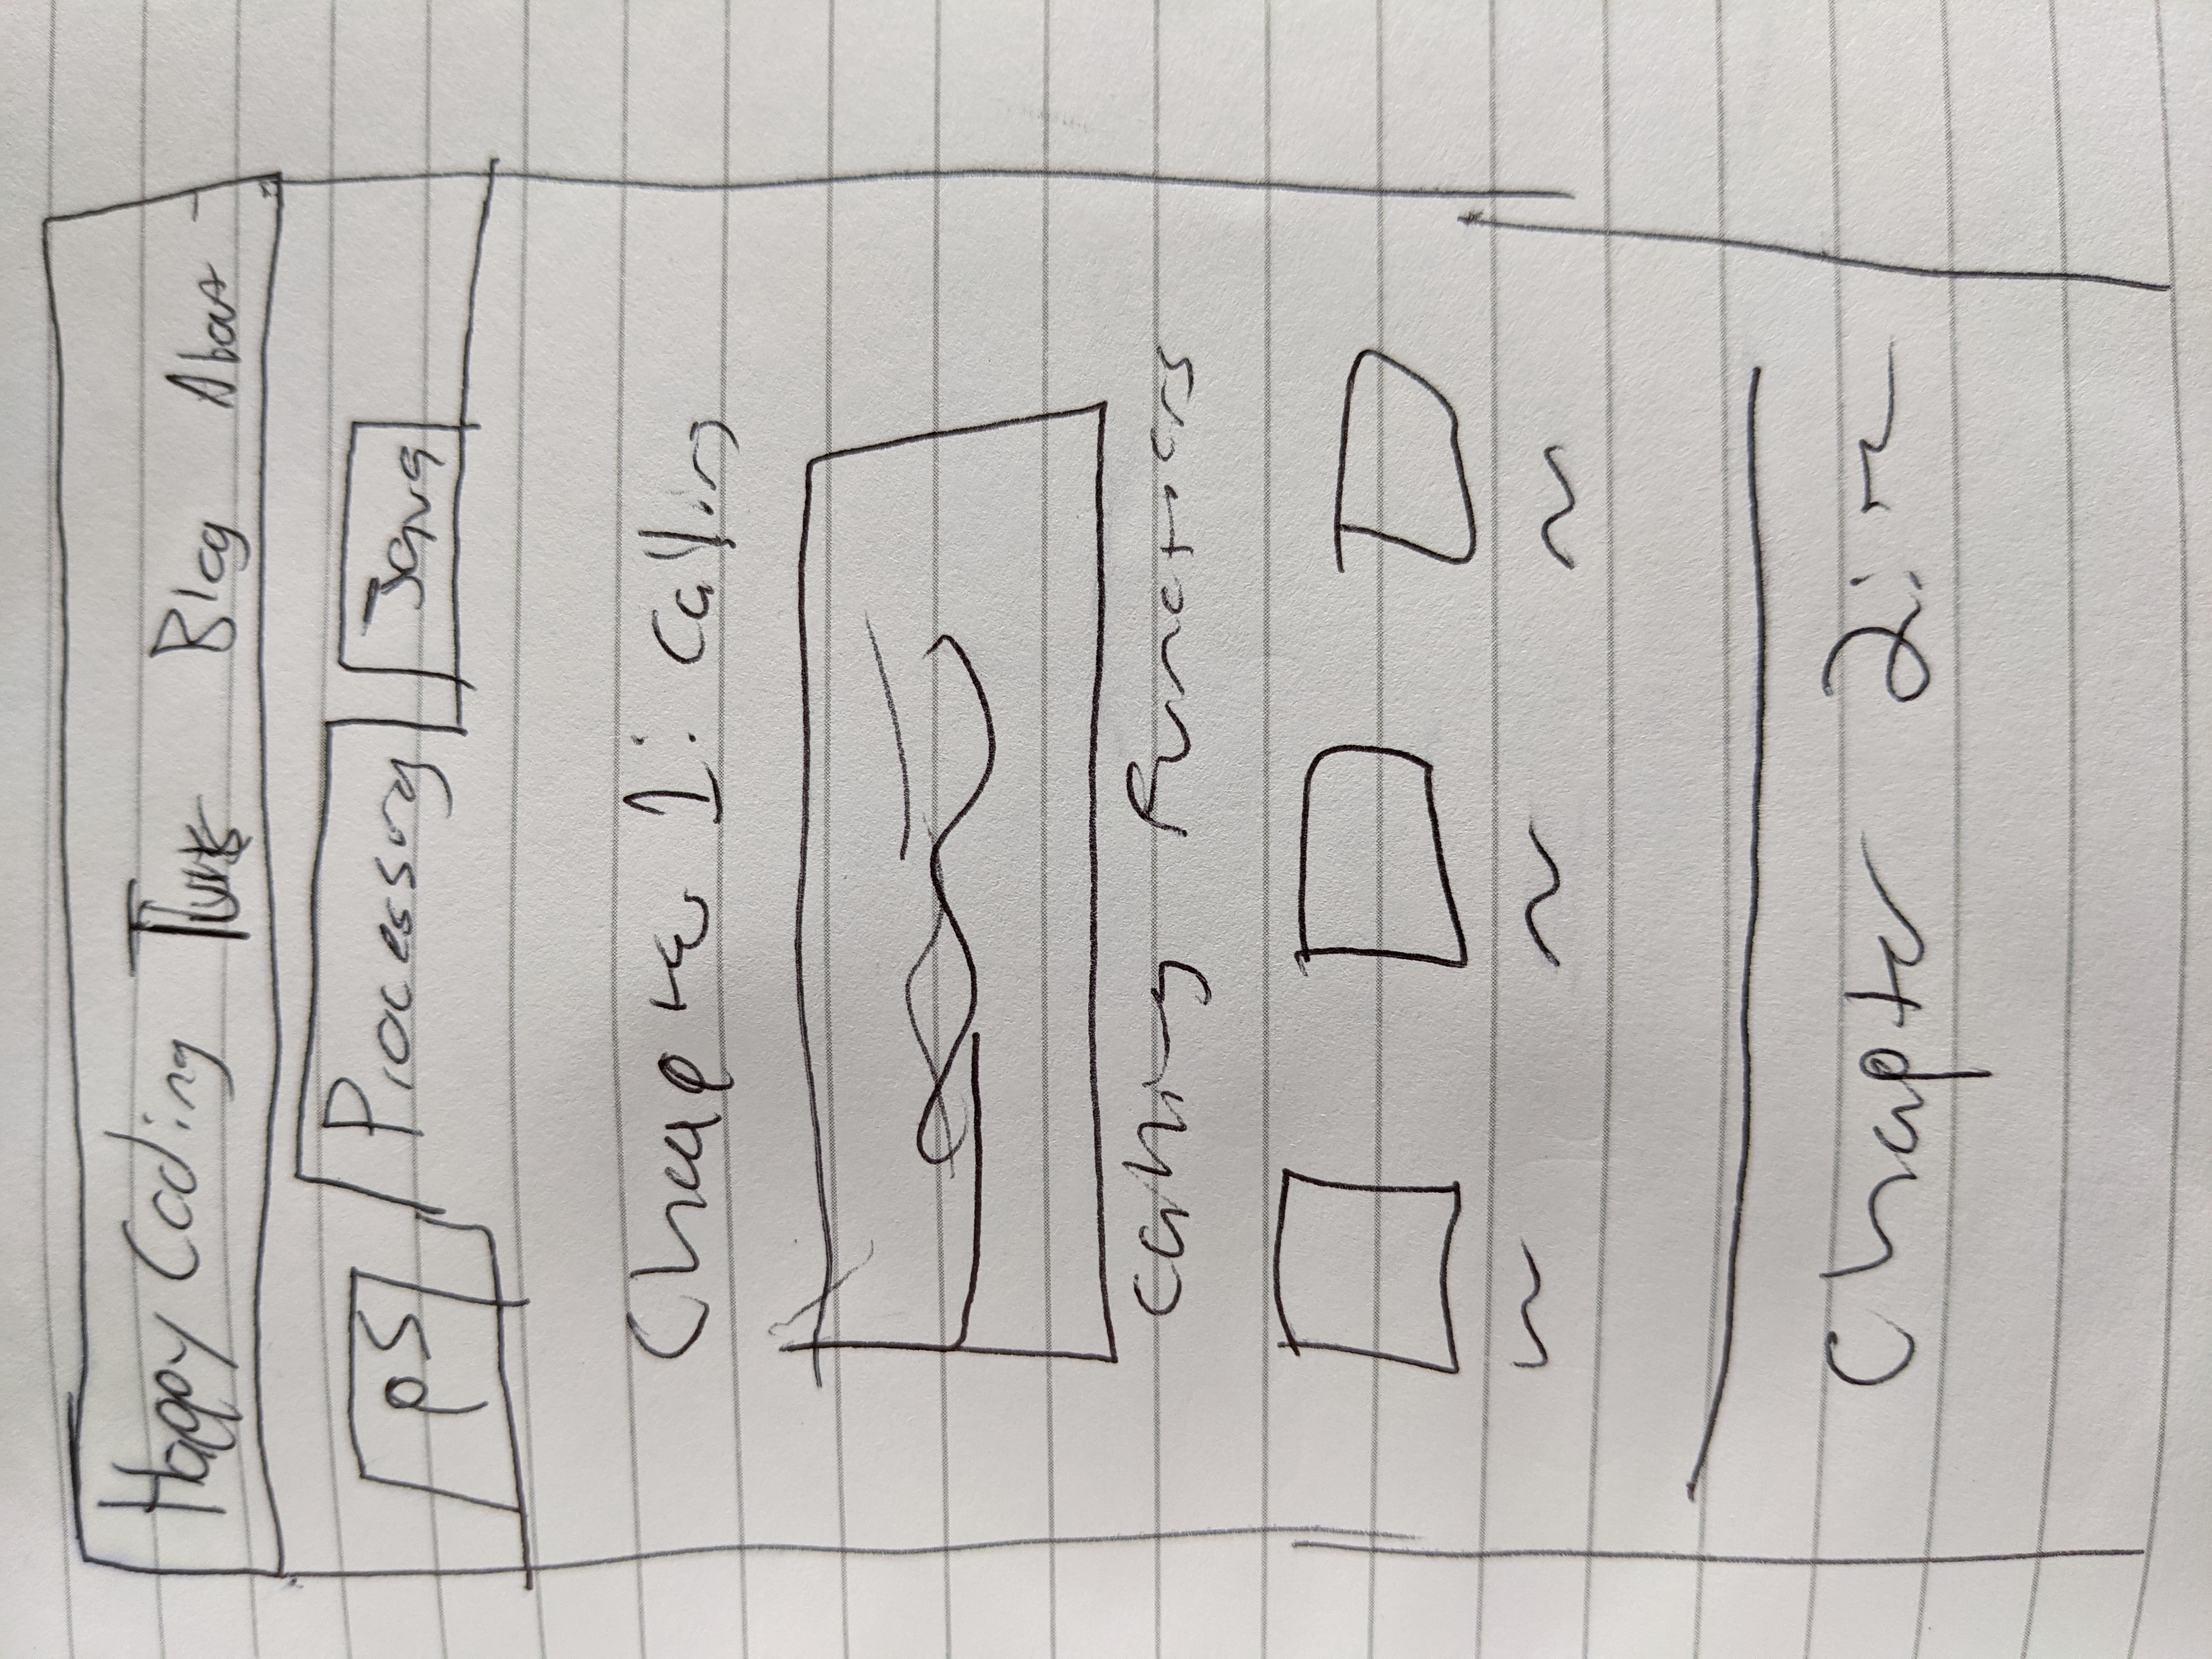 Happy Coding Tuts Blog About
p5 Processing Java
Chapter 1: Calling
Calling Functions
Chapter 2: